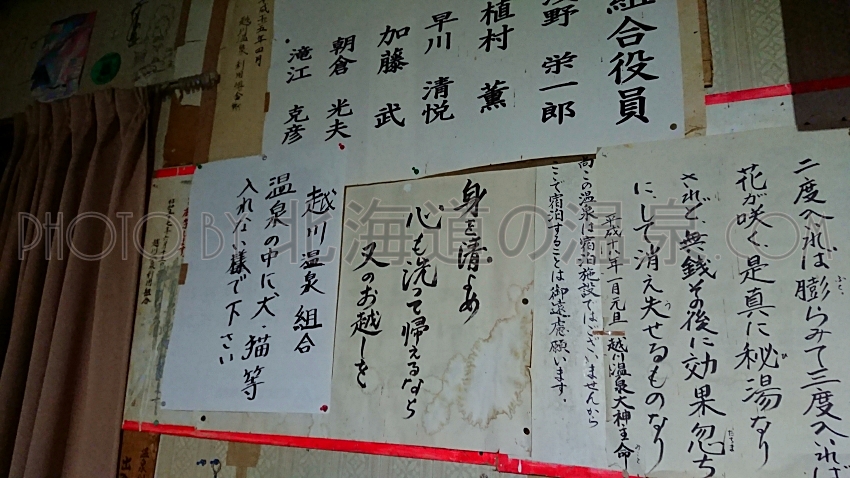 組合役員
野 栄一郎
植村 薫
早川 清悦
加藤 武
朝倉 光夫
滝江 克彦
平成十五年四月
越川温泉利用組合
二度入れば膨らみて三度入れば
花が咲く、是真に秘湯なり
されど、無銭その後に効果忽ち
にして消え失せるものなり
平成十八年一月元旦 越川温泉大神主命
尚この温泉は宿泊施設ではございませんから
ここで宿泊することは御遠慮願います。
身を清め
心も洗て帰えるなら
又のお越しを
越川温泉組合
温泉の中に犬・猫等
入れない様で下さい
PHOTO BY 北海道の温泉.COM